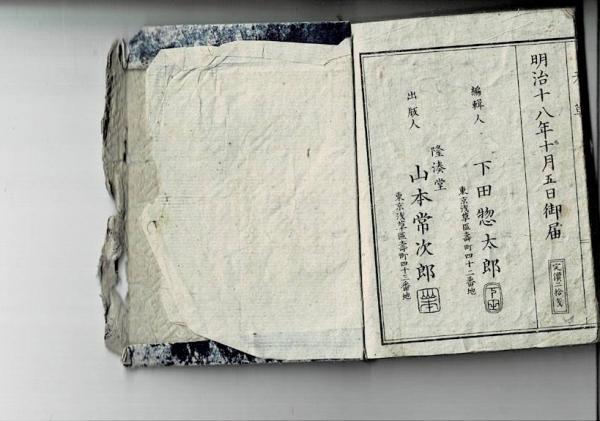 明治十八年十月五日御届
定價二拾戔
編輯人
下田惣太郎
下田
東京浅草區壽町四十二番地
出版人
隆湊堂
山本常次郎
山本
東京浅草區壽町四十三番地